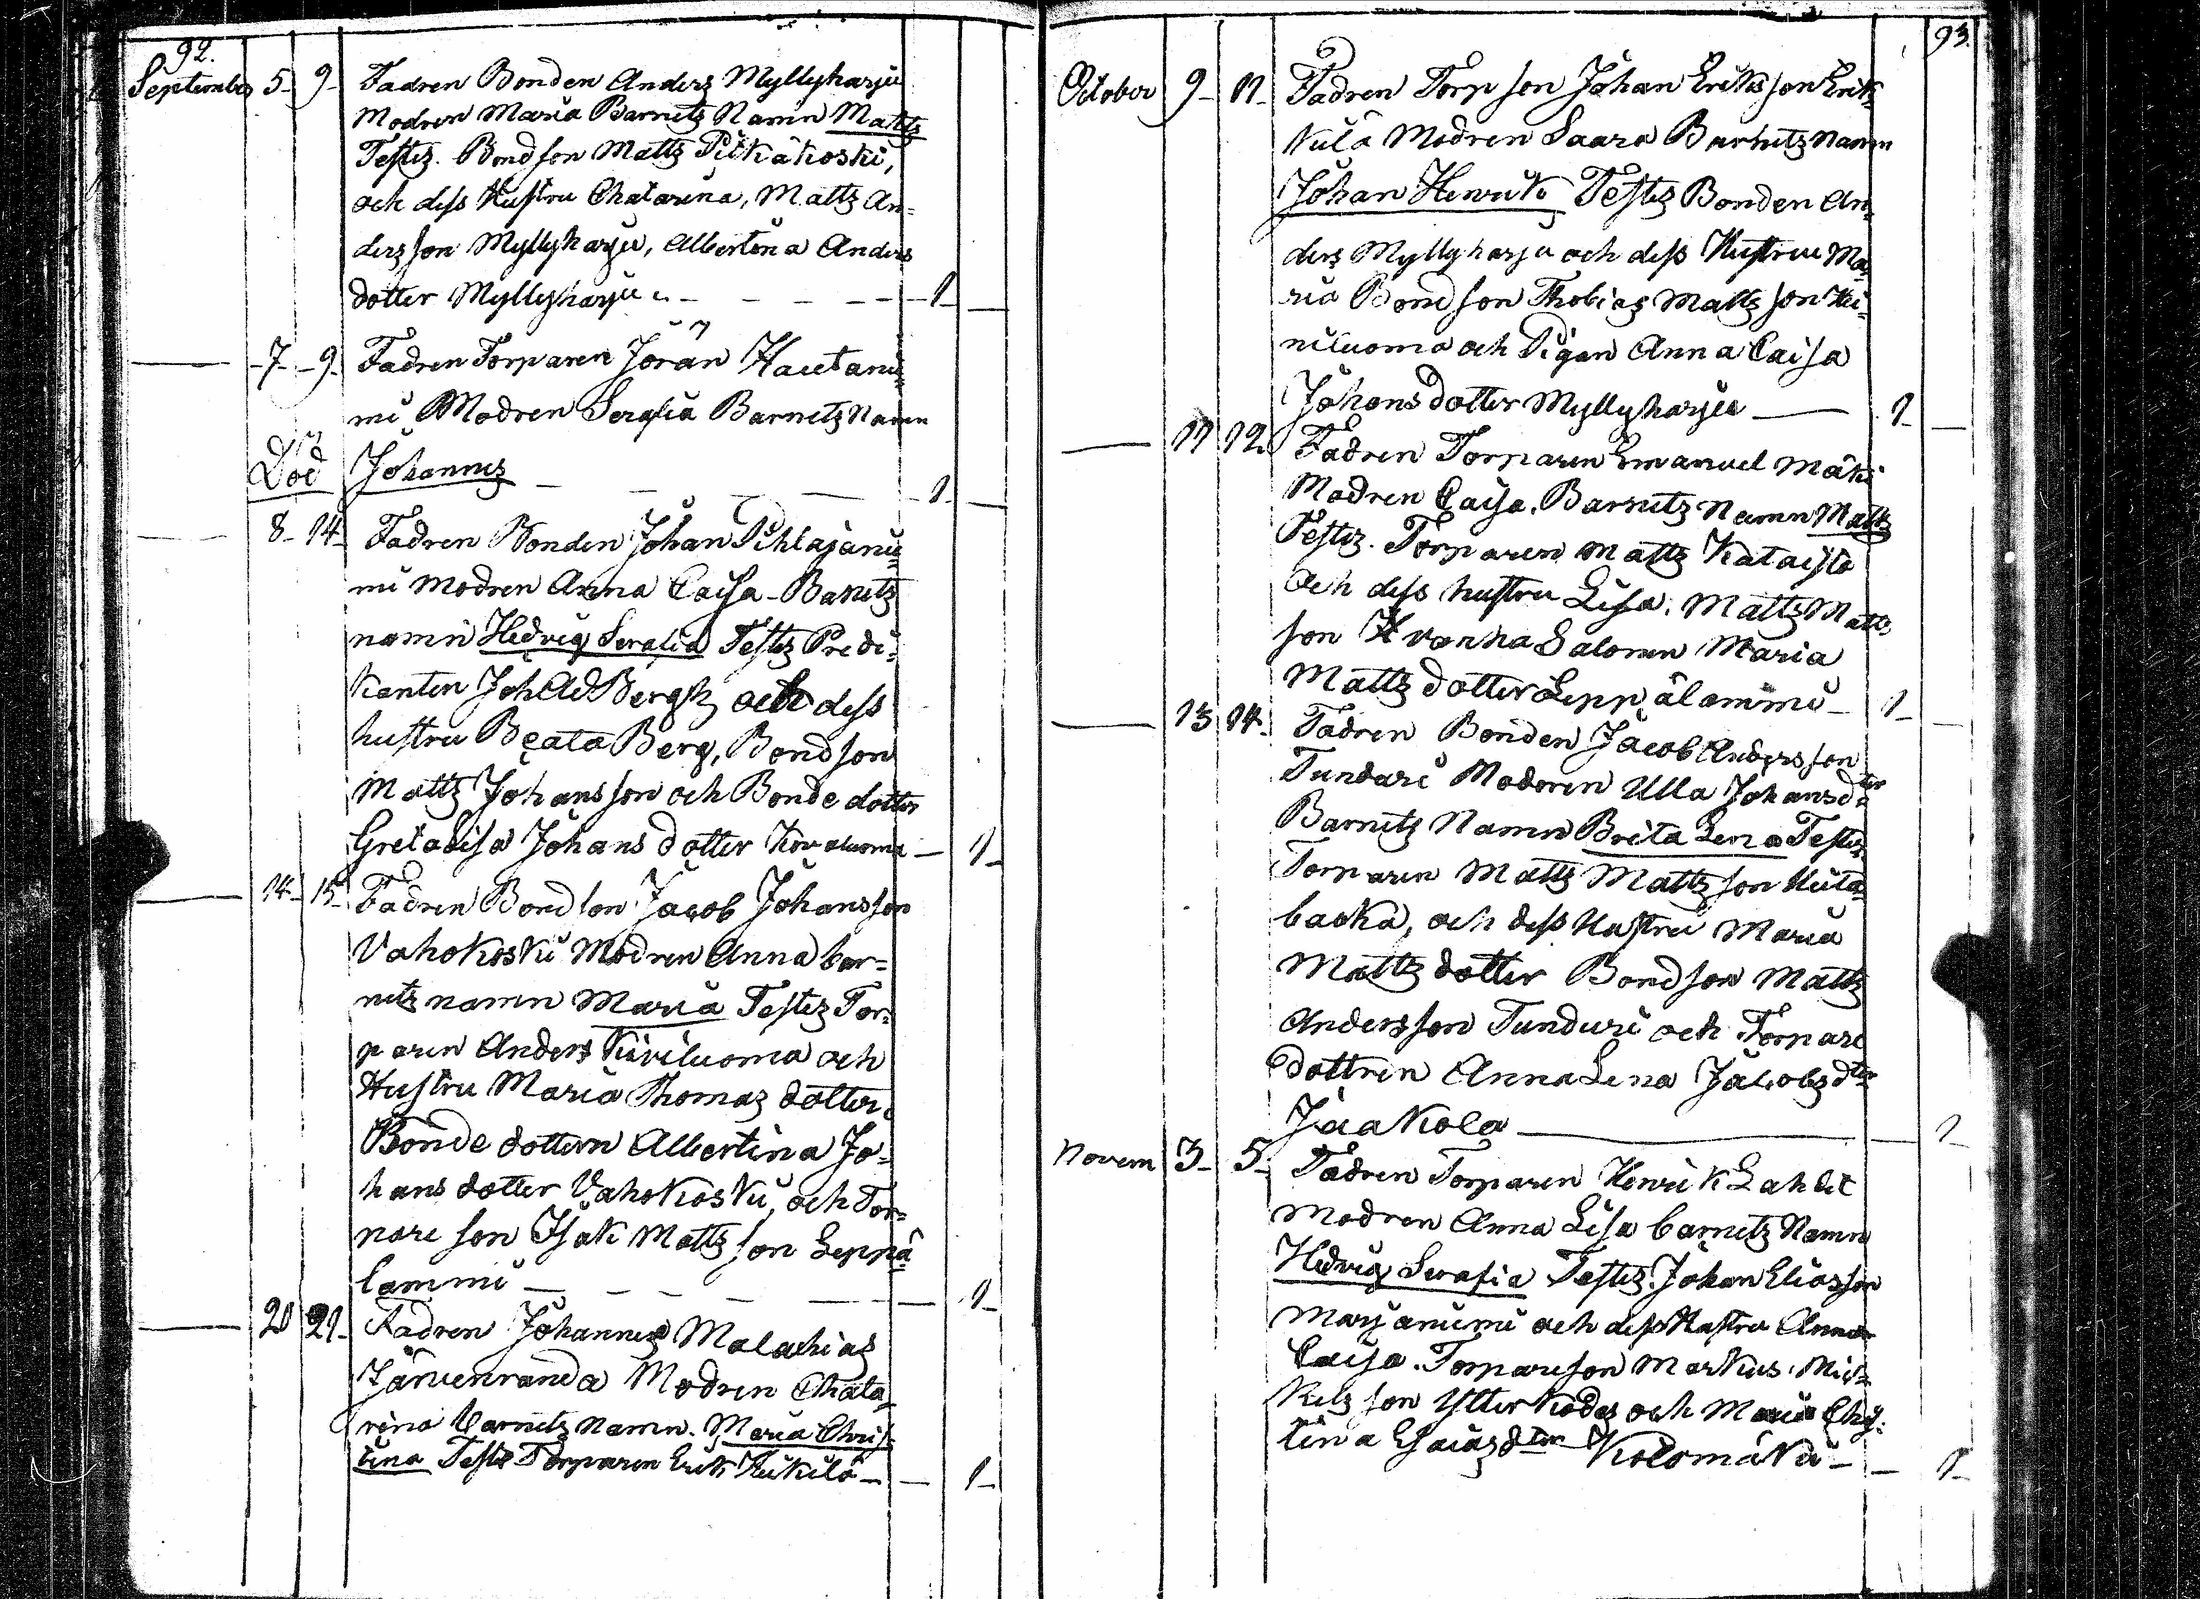 92.
September 5 9 Fadren Bonden Anders Myllyharju
Modren Maria Barnetz Namn Mattz
Testez. Bondson Mattz Pitkäkoski,
och dess Hustru Chatarina, Mattz An=
dersson Myllyharju, Albertina Anders
dotter Myllyharju 1
7 9 Fadren Torparen Jöran Hautanie=
mi Modren Serafia Barnetz Namn
Död Johannes 1
8 14 Fadren Bonden Johan Pihlajanie=
mi Modren Anna Caisa Banetz
namn Hedvig Serafia Testez Predi=
kanten Joh Ad Bergh och dess
hustru Beata Berg, Bondson
Mattz Johansson och Bonde dotter
Greta Lisa Johans dotter Kovaluoma 1
14 15 Fadren Bondson Jacob Johansson
Vahokoski Modren Anna bar=
netz namn Maria Testez Tor=
paren Anders Kiviluoma och
Hustru Maria Thomas dotter.
Bonde dottern Albertina Jo=
hans dotter Vahokoski, och Tor=
pare son Isak Mattzson Leppä=
lammi 1
20 21 Fadren Johannes Malachias
Järvenranda Modren Chata=
rina Barnetz Namn. Maria Chris=
tina Testez Torparen Erik Keikilä 1
93.
October 9 11 Fadren Torpson Johan Eriksson Erik=
kilä Modren Saara Barnetz Namn
Johan Henrik Testez Bonden An=
ders Myllyharju och dess Hustru Ma=
ria Bondson Thobias Mattzson Kei=
niluoma och Pigan Anna Caisa
Johans dotter Myllyharju 1
11 12 Fadren Torparen Emanuel Mäki
Modren Caisa. Barnetz Namn Mattz
Testez. Torparen Mattz Kataisto
och dess hustru Lisa. Mattz Mattz
son Maria
Mattz dotter Leppälammi 1
13 14 Fadren Bonden Jacob Andersson
Tunduri Modoren Ulla Johansdter
Barnetz Namn Brita Lena Testez
Torparen Mattz Mattzson Huta=
backa, och dess Hustru Maria
Mattz dotter Bondson Mattz
Andersson Tunduri och Torpare
dottren Anna Lena Jacobzdter
Jaakola 1
Novem 3 5 Fadren Torparen Henrik Lahdit
Modren Anna Lisa barnetz Namn
Hedvig Serafia Testez. Johan Eliasson
Marjaniemi och dess Hustru Anna
Caisa. Torpareson Markus Mic=
kelsson och Maria Chris=
tina Esaiasdter Kolomäki 1